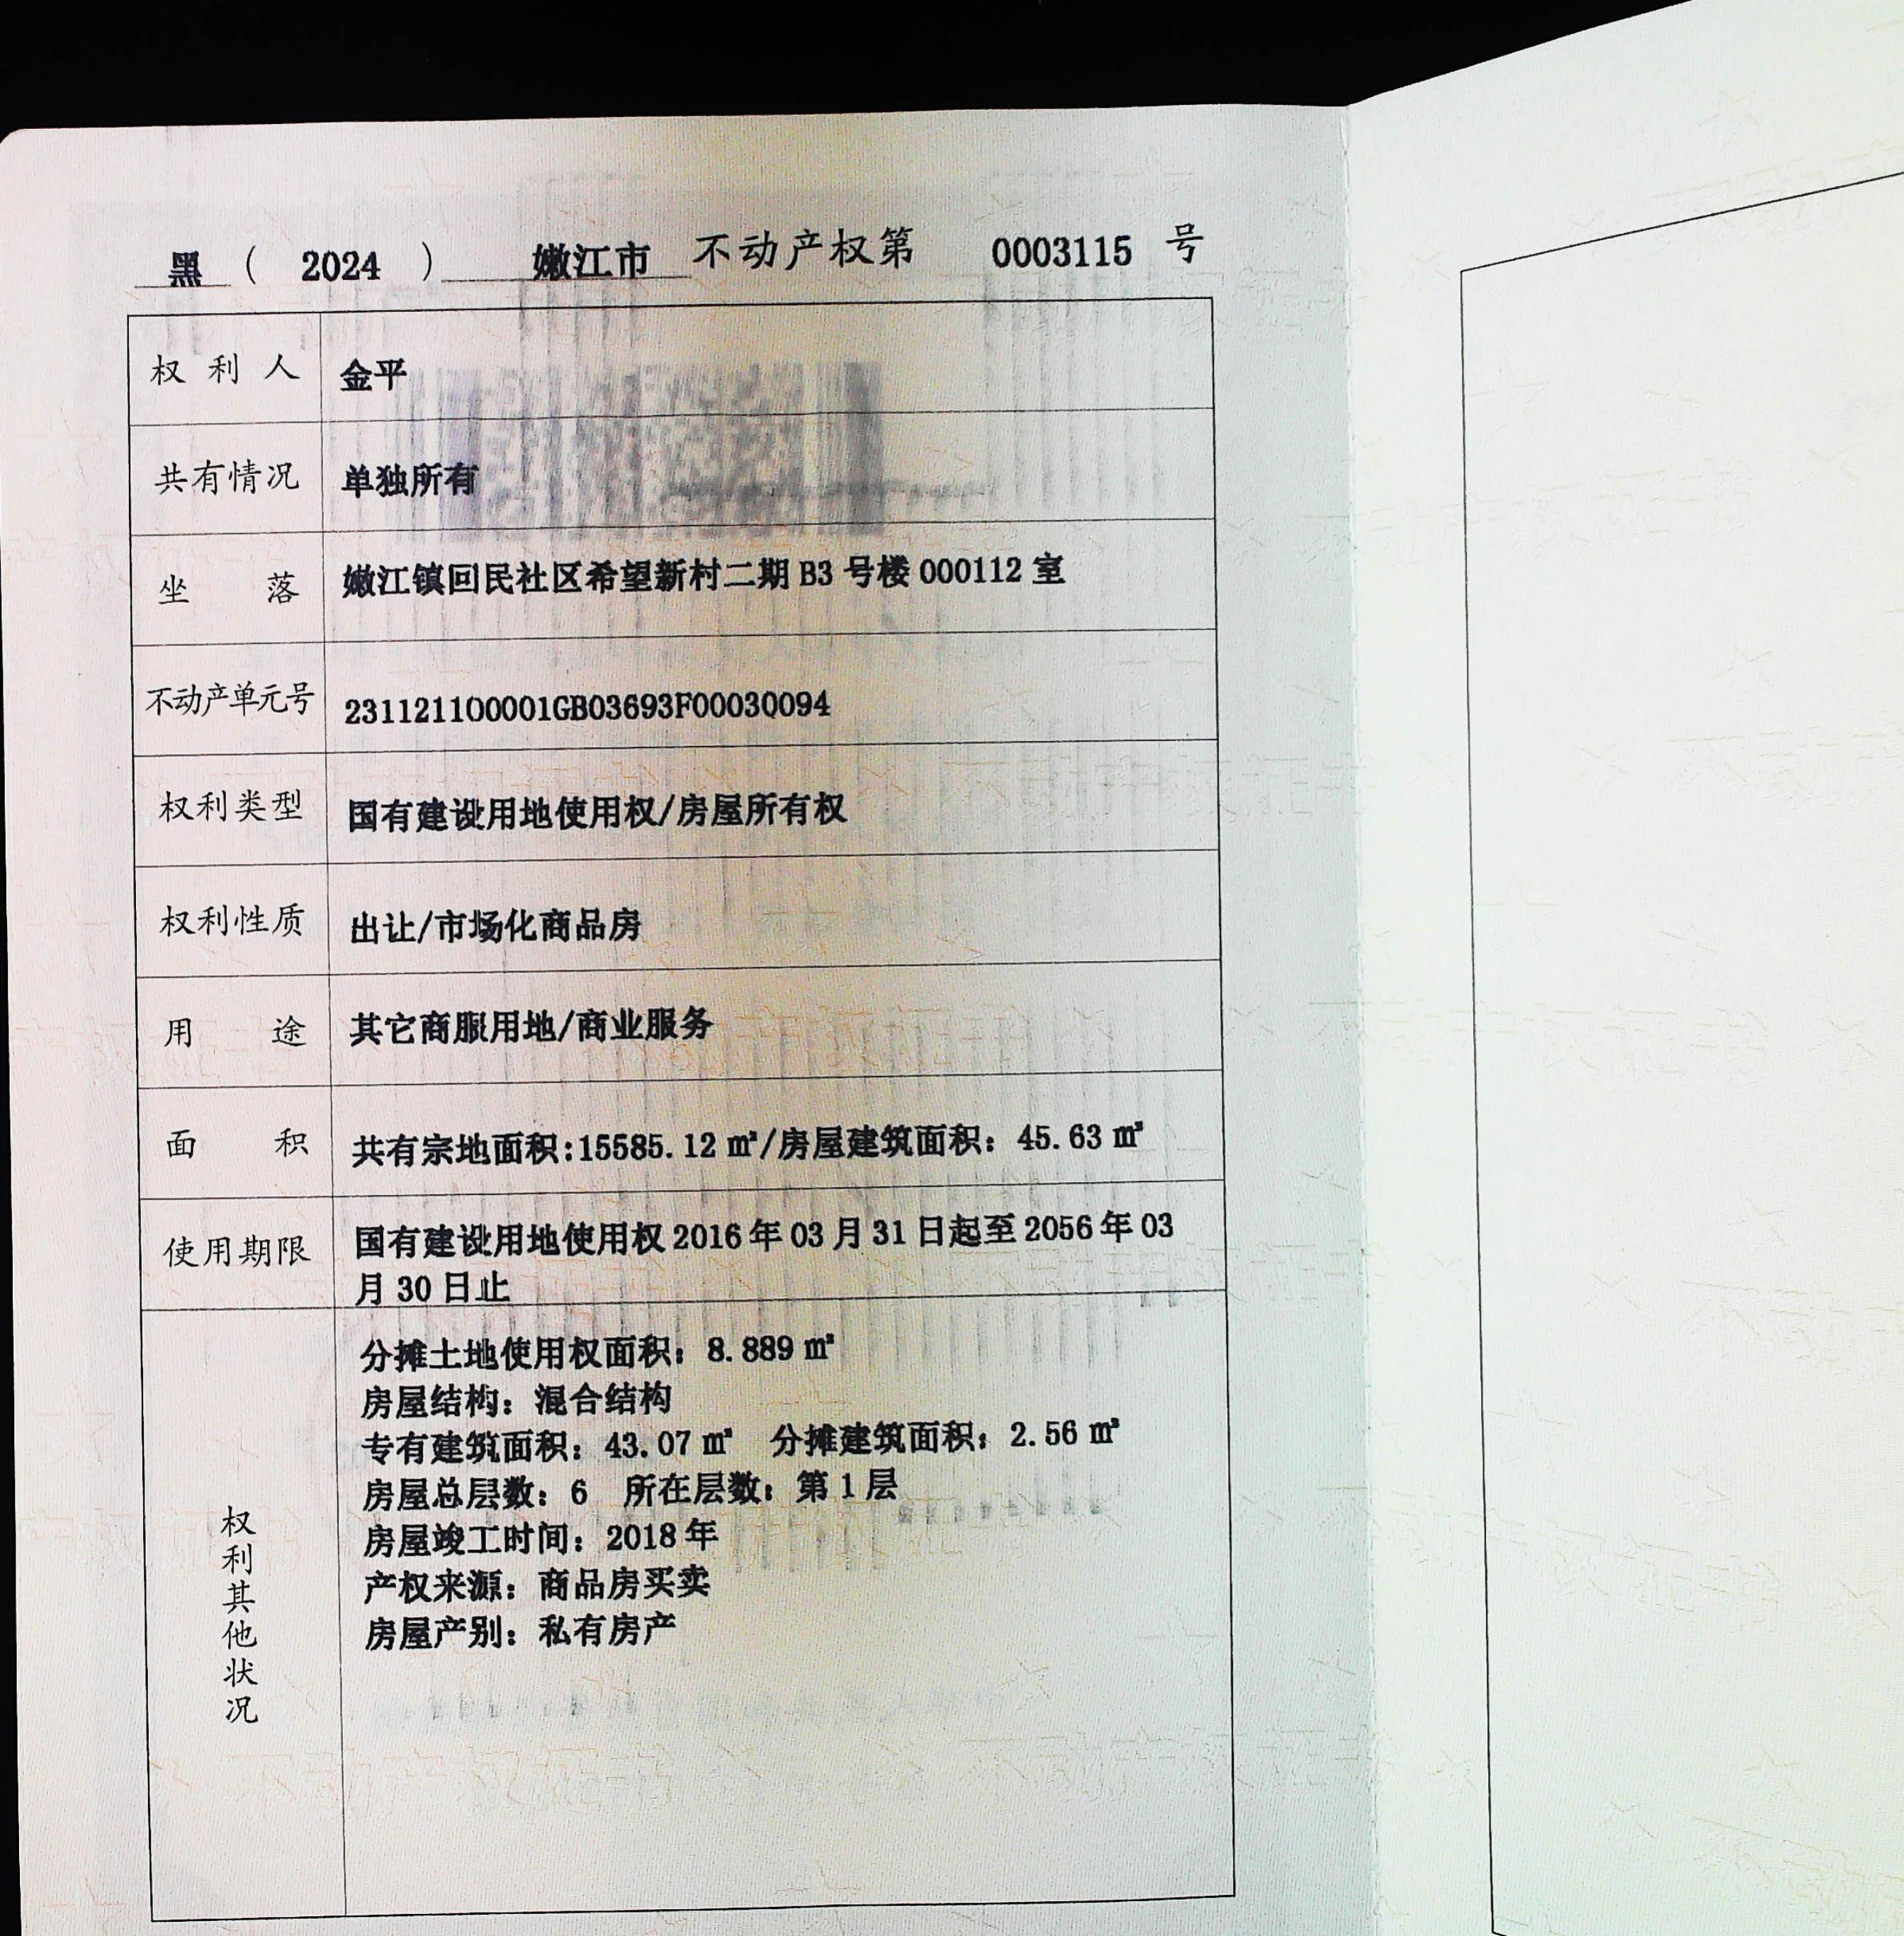 黑 （ 2024 ） 嫩江市 不动产权第 0003115 号
权利人 金平
共有情况 单独所有
坐落 嫩江镇回民社区希望新村二期 B3 号楼 000112 室
不动产单元号 231121100001GB03693F00030094
权利类型 国有建设用地使用权/房屋所有权
权利性质 出让/市场化商品房
用途 其它商服用地/商业服务
面积 共有宗地面积:15585.12 ㎡/房屋建筑面积：45.63 ㎡
使用期限 国有建设用地使用权 2016 年 03 月 31 日起至 2056 年 03
月 30 日止
权利其他状况
分摊土地使用权面积：8.889 ㎡
房屋结构：混合结构
专有建筑面积：43.07 ㎡ 分摊建筑面积：2.56 ㎡
房屋总层数：6 所在层数：第 1 层
房屋竣工时间：2018 年
产权来源：商品房买卖
房屋产别：私有房产